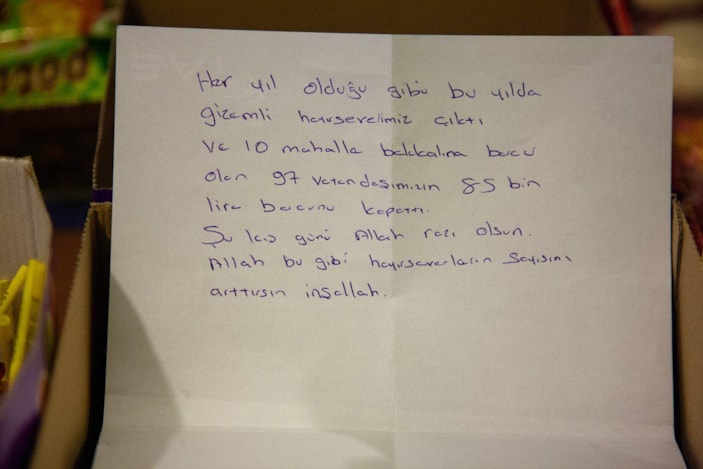 Her yıl olduğu gibi bu yılda
gizemli hayırseverimiz çıktı
ve 10 mahalle bakkalına borcu
olan 97 vatandaşımızın 85 bin
lira borcunu kapattı.
Şu kış günü Allah razı olsun.
Allah bu gibi hayırseverlerin sayısını
arttırsın inşallah.